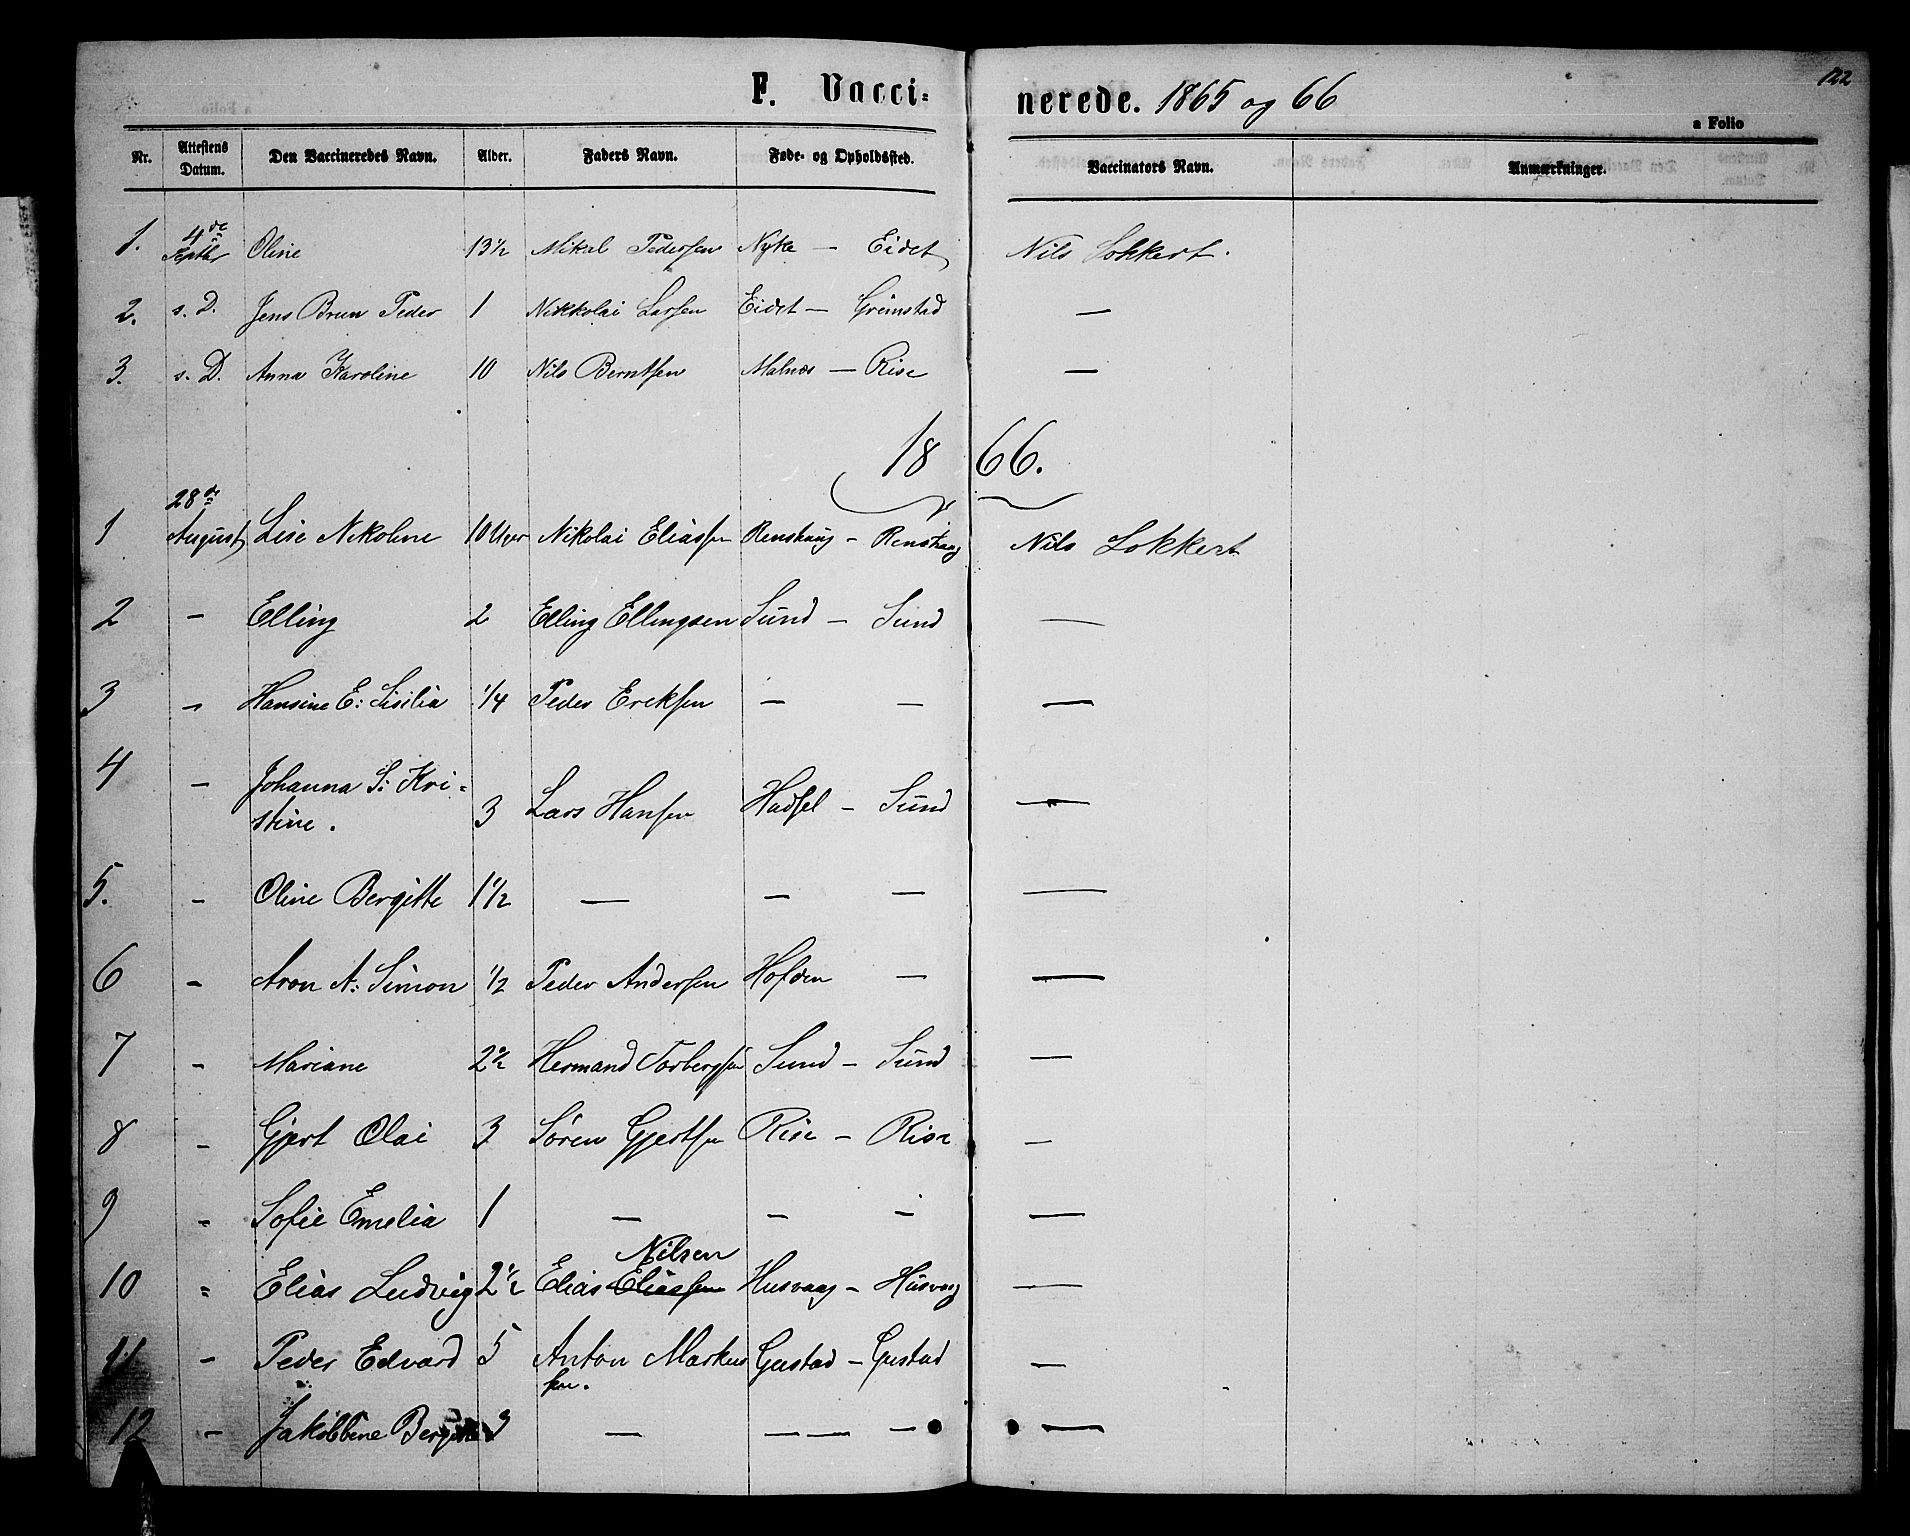 122
F. Vacci-nerede. 1865 og 66
a Folio
Nr. Attestens Datum. Den Vaccineredes Navn. Alder. Faders Navn. Føde- og Opholdssted. Vaccinators Navn. Anmærkninger.
1. 4de Septbr Oline 13½ Mikal Pedersen Nyke — Eidet Nils Lokkert.
2. s. D. Jens Brun Peder 1 Nikkolai Larsen Eidet — Grimstad —
3. s. D. Anna Karoline 10 Nils Berntsen Malnæs — Rise —
1866.
1 28de August Lise Nikoline 10 Uger Nikolai Eliassen Renshaug — Renshaug Nils Lokkert
2 — Elling 2 Elling Ellingsen Sund — Sund —
3 — Hansine E: Sisilia 1/4 Peder Ericksen — — —
4 — Johanna S: Kri-
stine. 3 Lars Hansen Hadsel — Sund —
5. — Oline Bergitte 1½ — — — —
6 — Aron A: Simon ½ Peder Andersen Hofden — —
7 — Mariane 2½ Hermand Torbergsen Sund — Sund —
8 — Gjert Olai 3 Søren Gjertsen Rise — Rise —
9 — Sofie Emelia 1 — — — —
Nilsen
10 — Elias Ludvig 2½ Elias Eliassen Husvaag — Husvaag —
11 — Peder Edvard 5 Anton Markus Gustad — Gustad —
sen.
12 — Jakobbine Bergitte 3 — — — —